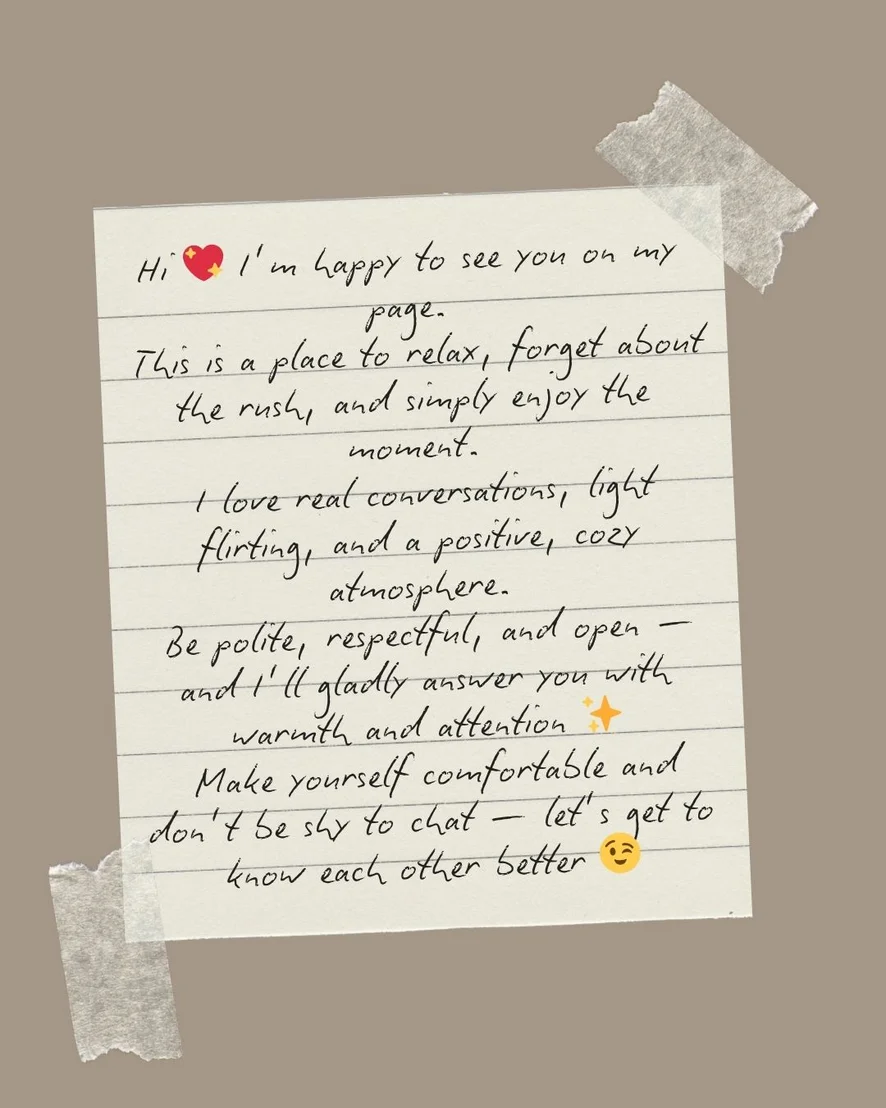 Hi 💖 I'm happy to see you on my
page.
This is a place to relax, forget about
the rush, and simply enjoy the
moment.
I love real conversations, light
flirting, and a positive, cozy
atmosphere.
Be polite, respectful, and open —
and I'll gladly answer you with
warmth and attention ✨
Make yourself comfortable and
don't be shy to chat — let's get to
know each other better 😉